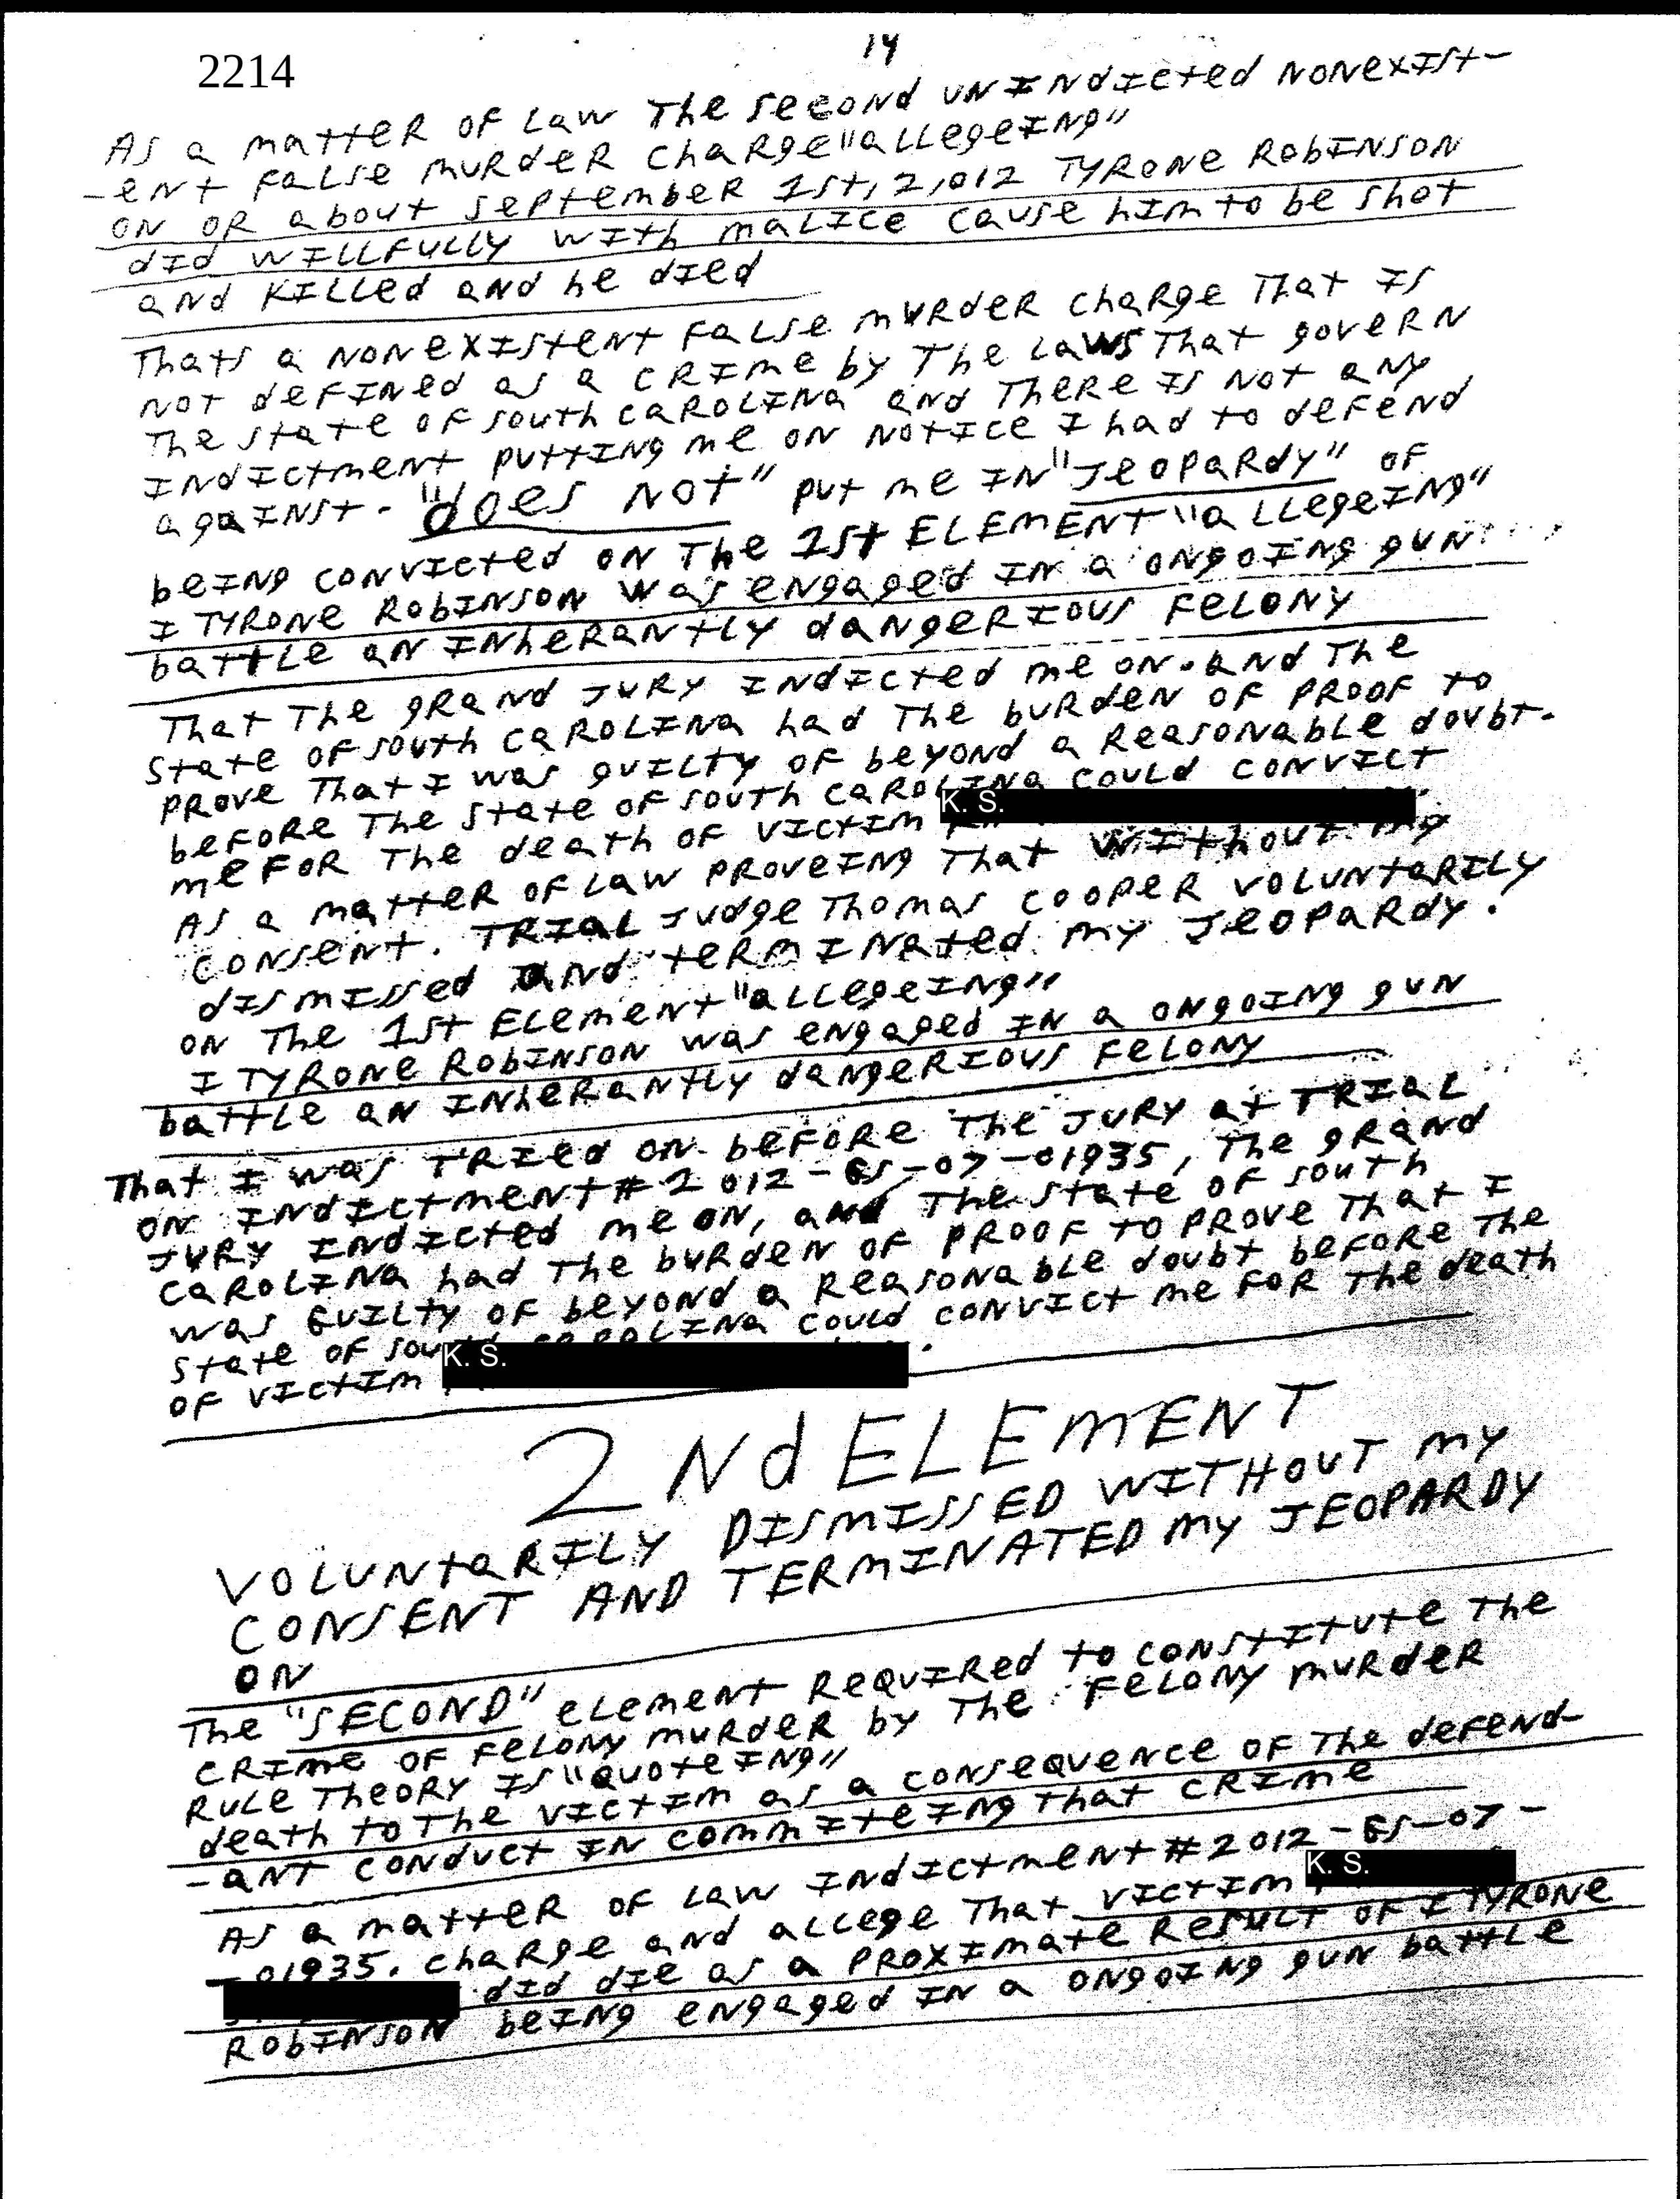 14
2214
As a matter of Law The second unindicted nonexist-
-ent false murder charge "allegeing"
on or about september 1st, 2,012 Tyrone Robinson
did willfully with malice cause him to be shot
and killed and he died
Thats a nonexistent false murder charge That is
not defined as a crime by The Laws That govern
The state of south carolina and There is not any
indictment putting me on notice I had to defend
against. "does not" put me in "Jeopardy" of
being convicted on The 1st ELEMENT "allegeing"
I Tyrone Robinson was engaged in a ongoing gun
battle an inherantly dangerious felony
That The grand Jury indicted me on. and The
State of south carolina had The burden of proof to
prove That I was guilty of beyond a reasonable doubt.
before The state of south carolina could convict
me for The death of victim K. S.
As a matter of law proveing That without my
consent. Trial Judge Thomas Cooper voluntarily
dismissed and terminated my Jeopardy.
on The 1st Element "allegeing"
I Tyrone Robinson was engaged in a ongoing gun
battle an inherantly dangerious felony
That I was Tried on before The Jury at Trial
on indictment # 2012-GS-07-01935, The grand
Jury indicted me on, and The state of south
carolina had The burden of proof to prove That I
was guilty of beyond a reasonable doubt before The
state of south carolina could convict me for The death
of victim K. S. .
2Nd ELEMENT
VOLUNtaRILY DISMISSED WITHOUT my
CONSENT AND TERMINATED my JEOPARDY
ON
The "SECOND" element required to constitute The
crime of felony murder by The felony murder
Rule Theory is "quoteing"
death to The victim as a consequence of The defend-
-ant conduct in commiteing That crime
As a matter of Law indictment # 2012-GS-07-
-01935. charge and allege That victim K. S.
did die as a proximate result of I Tyrone
Robinson being engaged in a ongoing gun battle